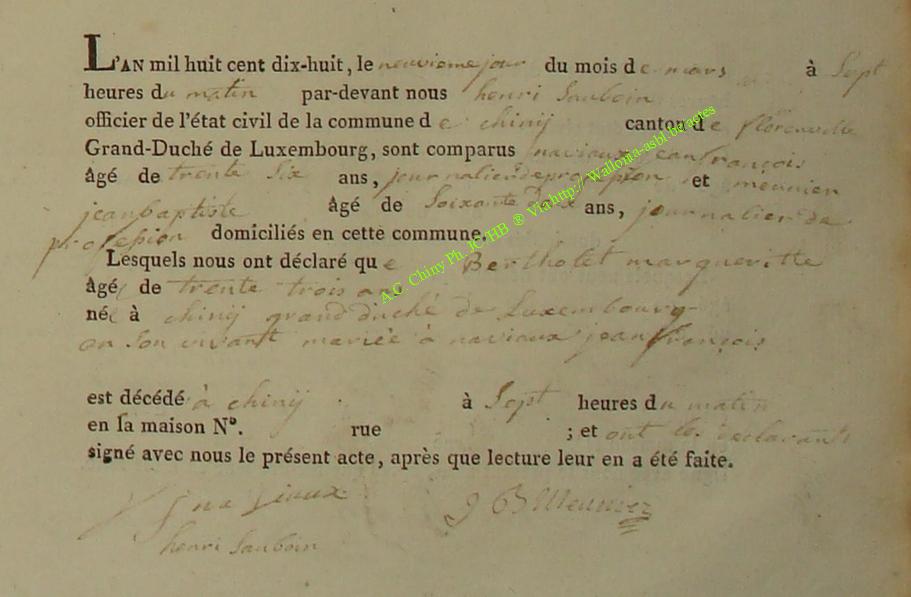 L'AN mil huit cent dix-huit, le neuvieme jour du mois de mars à Sept
heures du matin par-devant nous henri Sauboin
officier de l'état civil de la commune de chinij canton de florenville
Grand-Duché de Luxembourg, sont comparus naviaux jeanfrançois
âgé de trente Six ans, journalier de profession et meunier
jeanbaptiste âgé de Soixante ans, journalier de
profession domiciliés en cette commune.
Lesquels nous ont déclaré que Berthotet margueritte
âgée de trente trois ans
née à chinij grand duché de Luxembourg
en Son vivant mariée à naviaux jeanfrançois
est décédé à chinij à Sept heures du matin
en la maison N°. rue ; et ont les declarants
signé avec nous le présent acte, après que lecture leur en a été faite.
J B Meunier
henri Sauboin
A.C Chiny Ph. JC HB ® Via http://Wallonia-asbl.be/actes